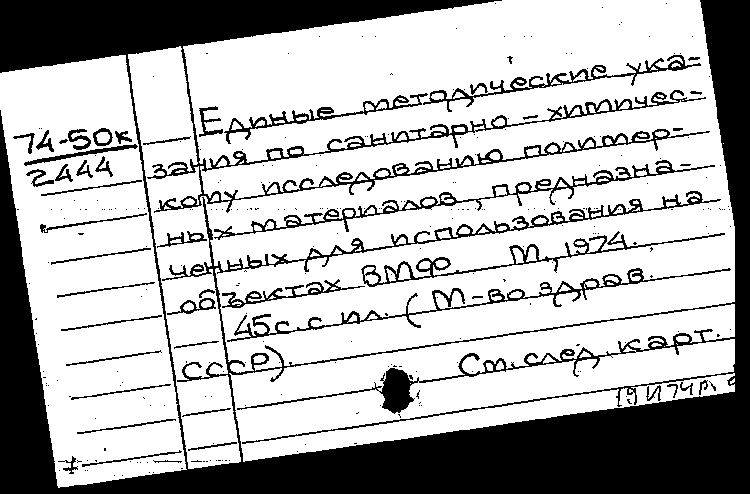 74-50к
2444
Единые методические ука-
зания по санитарно-химичес-
кому исследованию полимер-
ных материалов, предназна-
ченных для использования на
объектах ВМФ. М., 1974.
45с. с ил. (М-во здрав.
СССР).
См. след. карт.